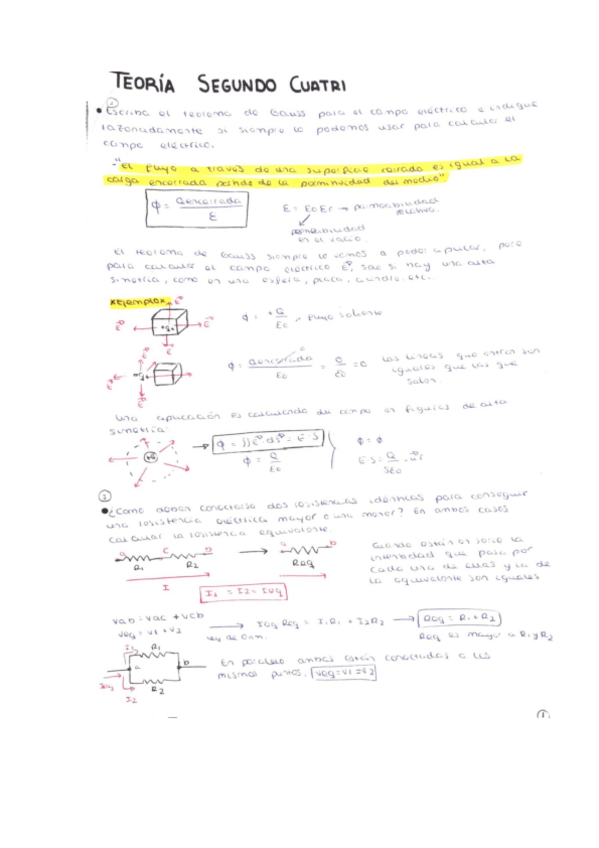 TEORÍA SEGUNDO CUATRI
①
• Escriba el teorema de Gauss para el campo eléctrico e indique
razonadamente si siempre lo podemos usar para calcular el
campo eléctrico.
"El flujo a través de una superficie cerrada es igual a la
carga encerrada partido de la permitividad del medio"
ϕ = Qencerrada / ε
ε = εo εr → permeabilidad relativa.
permeabilidad en el vacío.
El teorema de Gauss siempre lo vamos a poder aplicar, pero
para calcular el campo eléctrico E, solo si hay una alta
simetría, como en una esfera, placa, cilindro etc..
*Ejemplos*
ϕ = +Q / εo , flujo saliente
ϕ = Qencerrada / εo = 0 / εo = 0
Las líneas que entran son
iguales que las que
salen.
Una aplicación es calculando del campo en figuras de alta
simetría:
ϕ = ∫∫ E ds = E·S
ϕ = Q / εo
ϕ = ϕ
E·S = Q / Sεo · ur
②
• ¿Como deben conectarse dos resistencias idénticas para conseguir
una resistencia eléctrica mayor o una menor? En ambos casos
calcular la resistencia equivalente.
a c b
R1 R2
I
a b
Req
I1 = I2 = Ieq
Cuando están en serie la
intensidad que pasa por
cada una de ellas y la de
la equivalente son iguales
Vab = Vac + Vcb
Veq = V1 + V2
Ley de Ohm.
Ieq Req = I1 R1 + I2 R2
Req = R1 + R2
Req es mayor a R1 y R2
I1 R1
Ieq a b
I2 R2
En paralelo ambas están conectadas a los
mismos puntos. Veq = V1 = V2
①